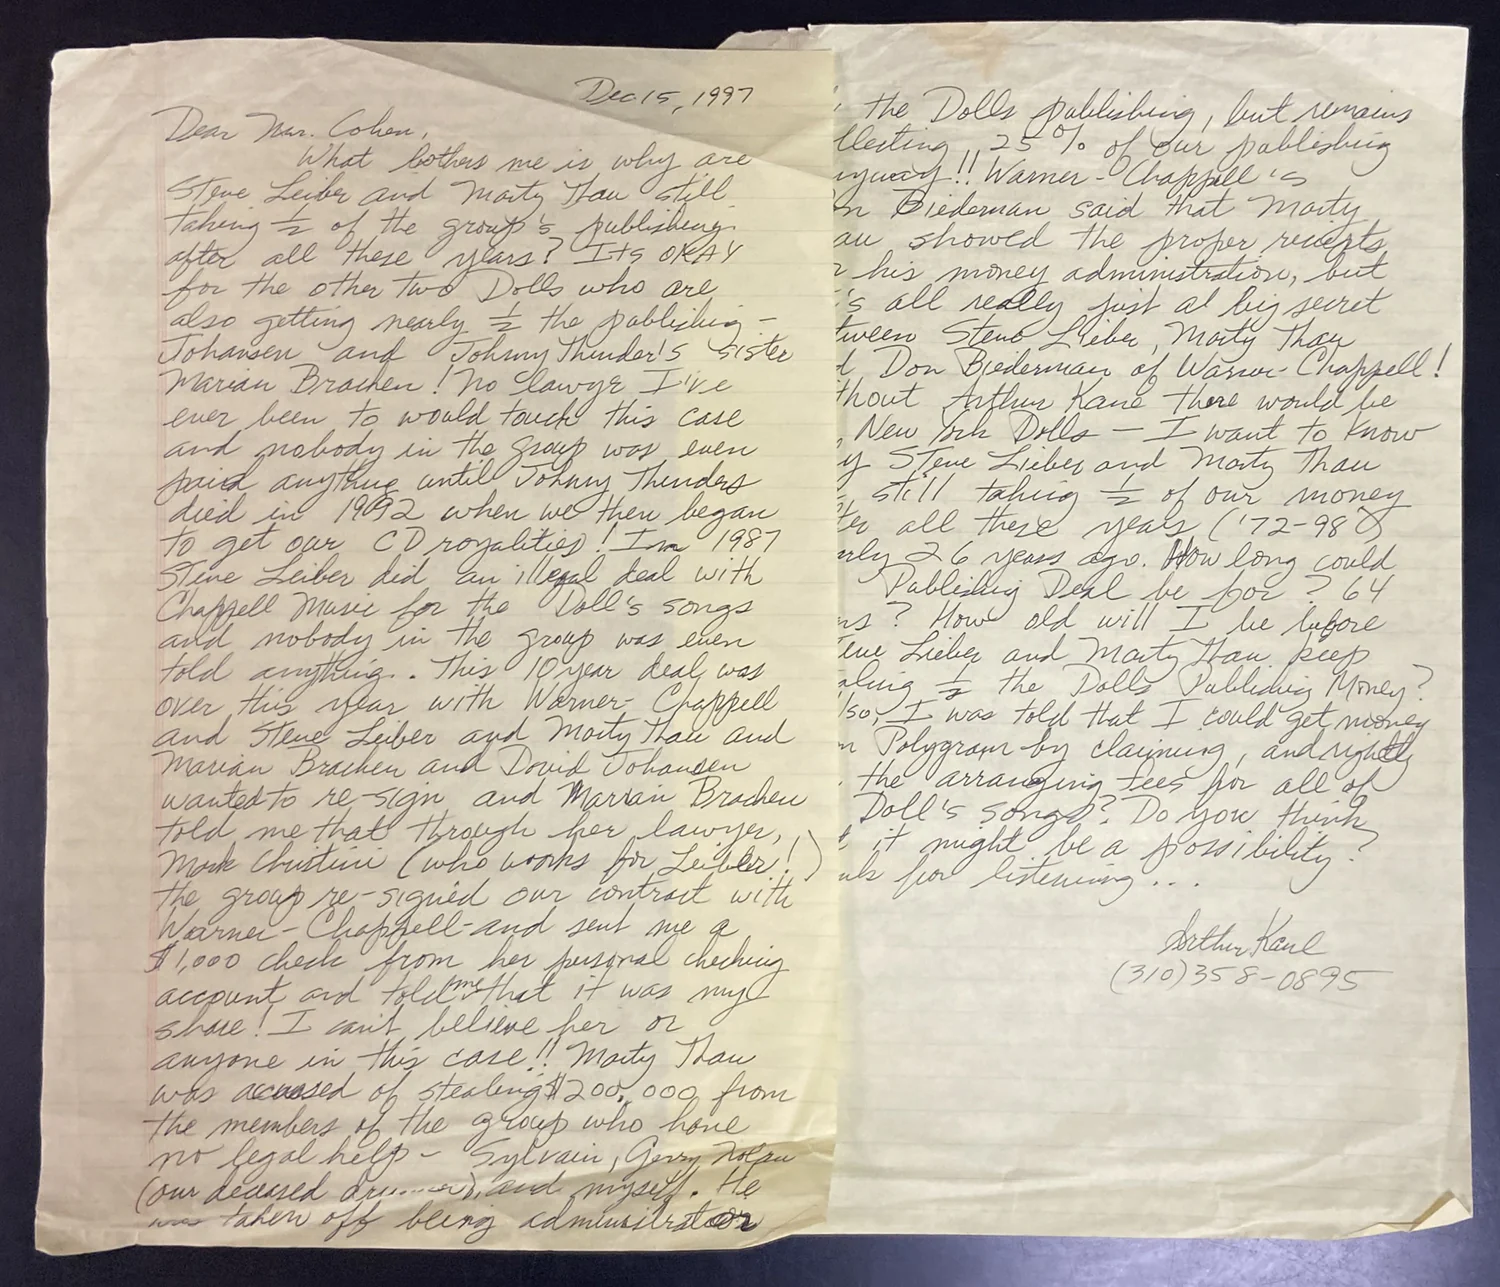 Dec 15, 1997
Dear Mr. Cohen,
What bothers me is why are
Steve Leiber and Marty Thau still
taking 1/2 of the group's publishing
after all these years? Its OKAY
for the other two Dolls who are
also getting nearly 1/2 the publishing -
Johansen and Johnny Thunder's sister
Marian Brachen! No lawyer I've
ever been to would touch this case
and nobody in the group was even
paid anything until Johnny Thunders
died in 1992 when we then began
to get our CD royalities! In 1987
Steve Leiber did an illegal deal with
Chappell Music for the Doll's songs
and nobody in the group was even
told anything. This 10 year deal was
over this year with Warner-Chappell
and Steve Leiber and Marty Thau and
Marian Brachen and David Johansen
wanted to re-sign and Marian Brachen
told me that through her lawyer,
Mark Christini (who works for Leiber!)
the group re-signed our contract with
Warner-Chappell-and sent me a
$1,000 check from her personal checking
account and told me that it was my
share! I can't believe her or
anyone in this case!! Marty Thau
was accused of stealing $200,000 from
the members of the group who have
no legal help - Sylvain, Gerry Nolan
(our deceased drummer), and myself. He
was taken off being administrator
the Dolls publishing, but remains
llecting 25% of our publishing
nyway!! Warner-Chappell's
on Biederman said that Marty
au showed the proper receipts
r his money administration, but
's all really just a big secret
tween Steve Lieber, Marty Thau
d Don Biederman of Warner-Chappell!
thout Arthur Kane there would be
New York Dolls - I want to know
y Steve Lieber and Marty Thau
still taking 1/2 of our money
ter all these years ('72-98?)
arly 26 years ago. How long could
Publishing Deal be for? 64
rs? How old will I be before
teve Lieber and Marty Thau keep
aling 1/2 the Dolls Publishing Money?
lso, I was told that I could get money
m Polygram by claiming, and rightly
the arranging fees for all of
Doll's songs? Do you think
t it might be a possibility?
nk for listening...
Arthur Kane
(310) 358-0895